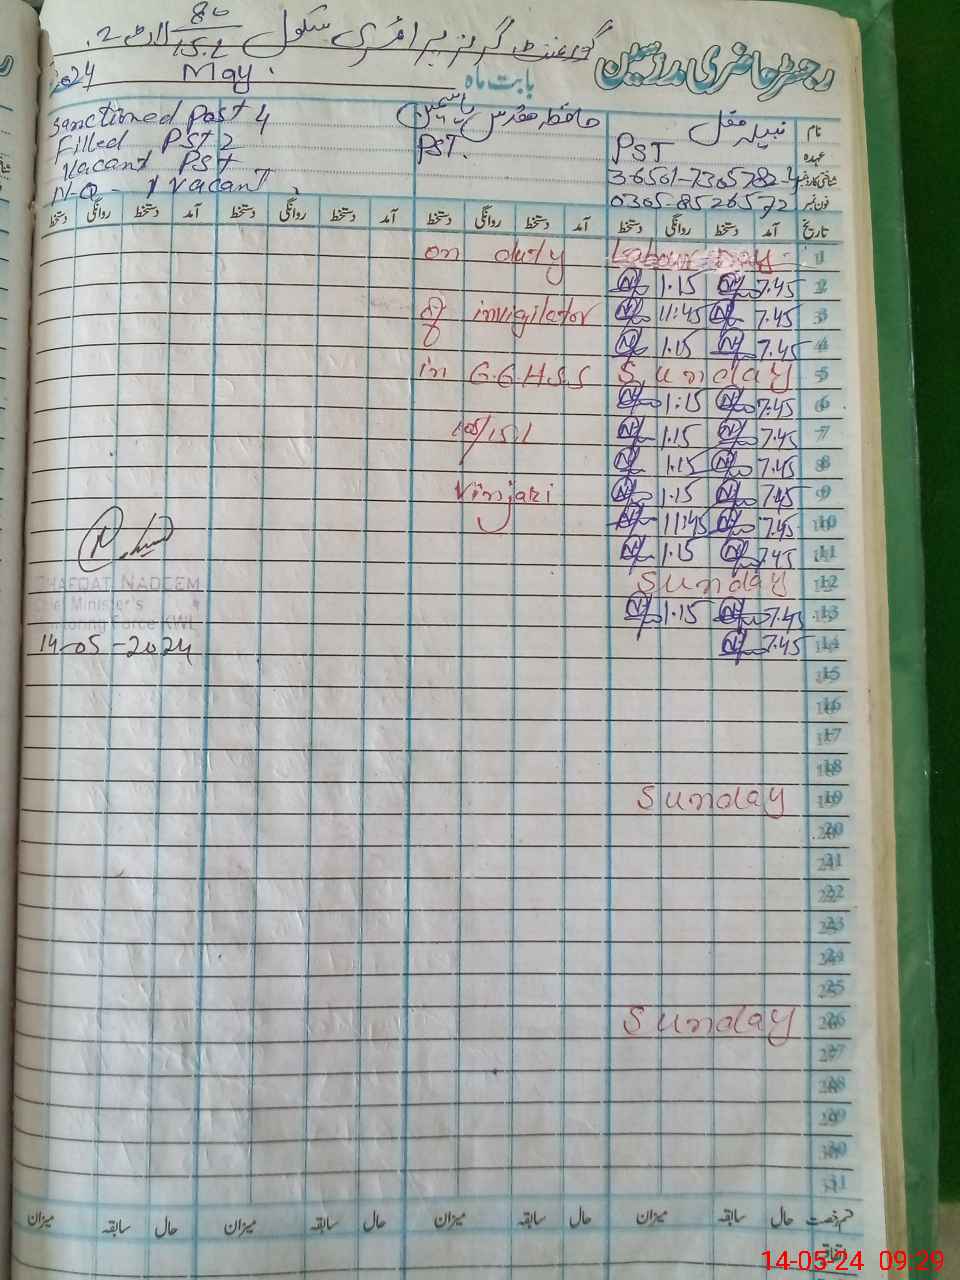 رجسٹر حاضری مدرسین
گورنمنٹ گرلز پرائمری سکول 80/15.L الرٹ 2
بابت ماہ May 2024
Sanctioned Post 4
Filled PST 2
Vacant PST
N-Q - 1 Vacant
نام نبیلہ حافظہ مقدس یاسمین
عہدہ PST PST.
فون نمبر 0305-8526572
تاریخ آمد دستخط روانگی دستخط آمد دستخط روانگی دستخط آمد دستخط روانگی دستخط آمد دستخط روانگی دستخط
1 Labour Day on duty
2 7.45 1.15
3 7.45 11:45 of invigilator
4 7.45 1.15
5 Sunday in G.G.H.S.S
6 7.45 1:15
7 7.45 1.15 /15.L
8 7.45 1.15
9 7.45 1.15 Vinjari
10 7.45 11:45
11 7.45 1.15
12 Sunday
13 7.45 1.15
14 7.45
SHAFQAT NADEEM
Chief Minister's
Monitoring Force KWL
14-05-2024
15
16
17
18
19 Sunday
20
21
22
23
24
25
26 Sunday
27
28
29
30
31
قسم رخصت حال سابقہ میزان حال سابقہ میزان حال سابقہ میزان حال سابقہ میزان
اتفاقیہ
14-05-24 09:29